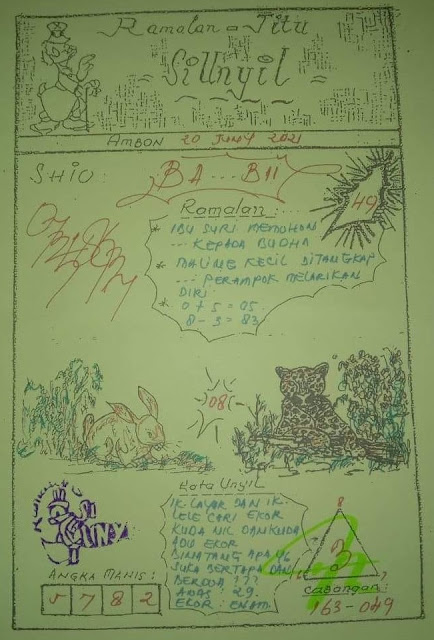 Ramalan - Jitu
SiUnyil
AMBON 20 JUNY 2021
SHIO: BA...BII
49
Ramalan:
* IBU SURI MEMOHON
... KEPADA BUDHA
* MALING KECIL DITANGKAP
... PERAMPOK MELARIKAN
DIRI
* 0 + 5 = 05
8 - 3 = 83
08
Kata Unyil
IK. LAYAR DAN IK.
LELE CARI EKOR
KUDA NIL DAN KUDA
ADU EKOR
BINATANG APA YG
SUKA BERTAPA DAN
BERDOA ???
AWAS: 29.
EKOR: ENAM
UNY
ANGKA MANIS:
5 7 8 2
8
3
7
Cabangan:
163 - 049